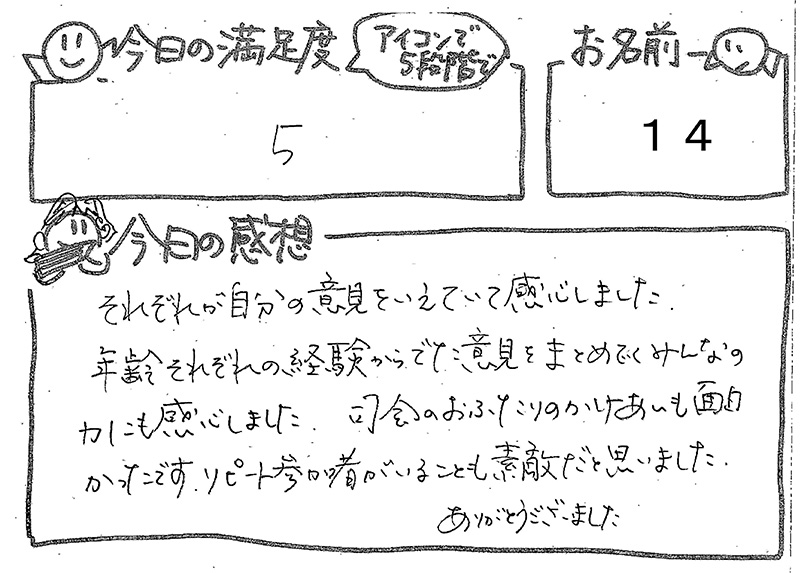 今日の満足度
アイコンで
5段階で
お名前
5
14
今日の感想
それぞれが自分の意見をいえていて感心しました.
年齢それぞれの経験からでた意見をまとめてくみんなの
力にも感心しました. 司会のおふたりのかけあいも面白
かったです.リピート参加者がいることも素敵だと思いました.
ありがとうございました